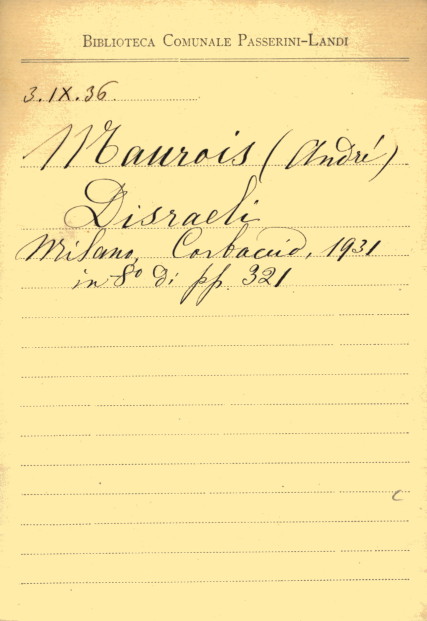 BIBLIOTECA COMUNALE PASSERINI-LANDI
3. IX. 36.
Maurois (André)
Disraeli
Milano, Corbaccio, 1931
in 8º di pp. 321
c